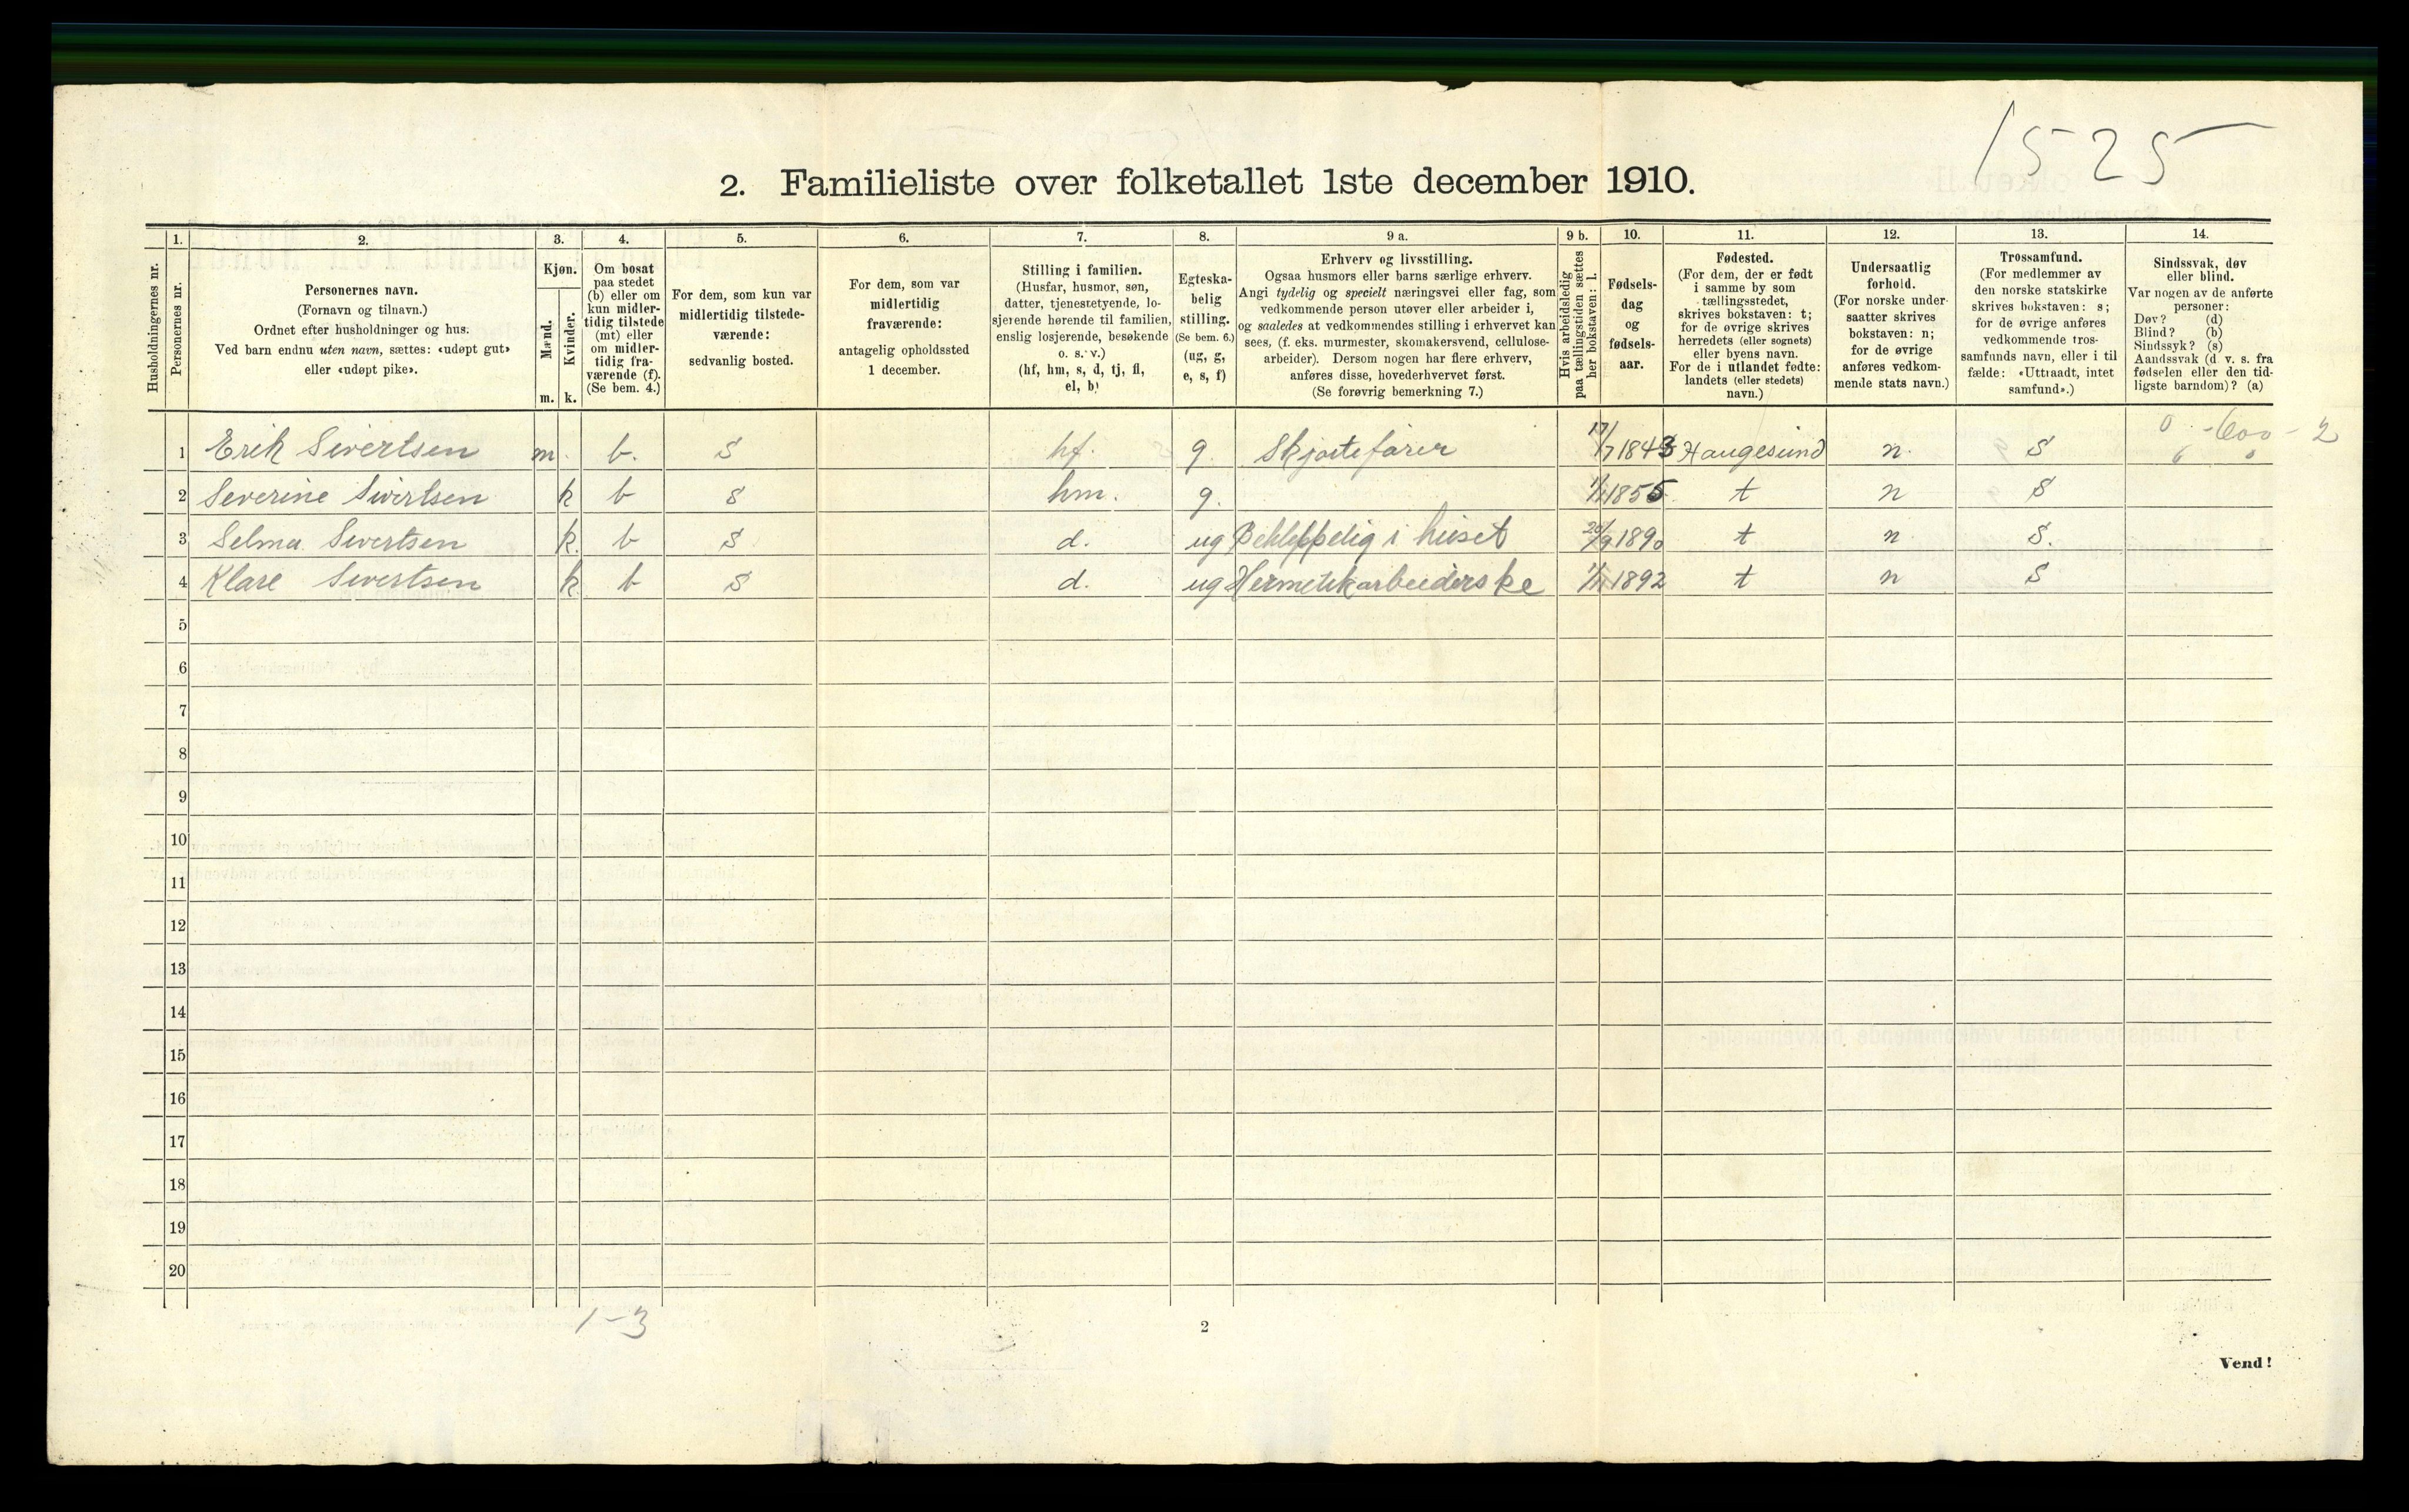 1525
2. Familieliste over folketallet 1ste december 1910.
Husholdningernes nr.
1.
Personernes nr.
2.
Personernes navn.
(Fornavn og tilnavn.)
Ordnet efter husholdninger og hus.
Ved barn endnu uten navn, sættes: «udøpt gut»
eller «udøpt pike».
3.
Kjøn.
Mænd.
Kvinder.
m. k.
4.
Om bosat
paa stedet
(b) eller om
kun midler-
tidig tilstede
(mt) eller
om midler-
tidig fra-
værende (f).
(Se bem. 4.)
5.
For dem, som kun var
midlertidig tilstede-
værende:
sedvanlig bosted.
6.
For dem, som var
midlertidig
fraværende:
antagelig opholdssted
1 december.
7.
Stilling i familien.
(Husfar, husmor, søn,
datter, tjenestetyende, lo-
sjerende hørende til familien,
enslig losjerende, besøkende
o. s. v.)
(hf, hm, s, d, tj, fl,
el, b)
8.
Egteska-
belig
stilling.
(Se bem. 6.)
(ug, g,
e, s, f)
9 a.
Erhverv og livsstilling.
Ogsaa husmors eller barns særlige erhverv.
Angi tydelig og specielt næringsvei eller fag, som
vedkommende person utøver eller arbeider i,
og saaledes at vedkommendes stilling i erhvervet kan
sees, (f. eks. murmester, skomakersvend, cellulose-
arbeider). Dersom nogen har flere erhverv,
anføres disse, hovederhvervet først.
(Se forøvrig bemerkning 7.)
9 b.
Hvis arbeidsledig
paa tællingstiden sættes
her bokstaven: l.
10.
Fødsels-
dag
og
fødsels-
aar.
11.
Fødested.
(For dem, der er født
i samme by som
tællingsstedet,
skrives bokstaven: t;
for de øvrige skrives
herredets (eller sognets)
eller byens navn.
For de i utlandet fødte:
landets (eller stedets)
navn.)
12.
Undersaatlig
forhold.
(For norske under-
saatter skrives
bokstaven: n;
for de øvrige
anføres vedkom-
mende stats navn.)
13.
Trossamfund.
(For medlemmer av
den norske statskirke
skrives bokstaven: s;
for de øvrige anføres
vedkommende tros-
samfunds navn, eller i til-
fælde: «Uttraadt, intet
samfund».)
14.
Sindssvak, døv
eller blind.
Var nogen av de anførte
personer:
Døv? (d)
Blind? (b)
Sindssyk? (s)
Aandssvak (d. v. s. fra
fødselen eller den tid-
ligste barndom)? (a)
0 - 600 - 2
1 Erik Sivertsen m. b. s hf. g. 17/7 1843 Haugesund n. s
2 Severine Sivertsen k b s hm. g. 1/11 1855 t n s
3 Selma Sivertsen k. b s d. ug i huset 20/9 1890 t n s.
4 Klare Sivertsen k b s d. ug Hermetikarbeiderske 1/11 1892 t n s
5
6
7
8
9
10
11
12
13
14
15
16
17
18
19
20
1-3
2
Vend!